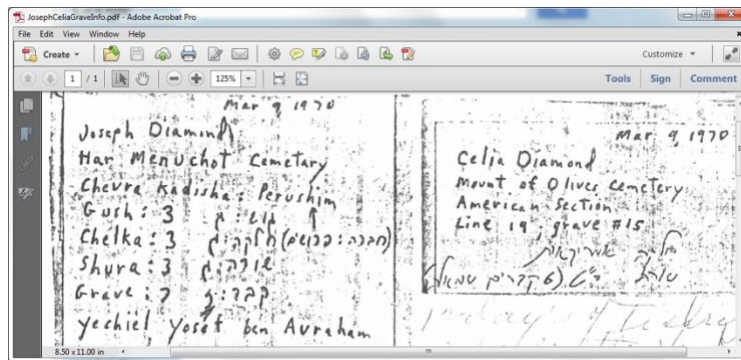 JosephCeliaGraveInfo.pdf - Adobe Acrobat Pro
File Edit View Window Help
Create
Customize
1 / 1
125%
Tools Sign Comment
Mar 9 1970
Joseph Diamond
Har Menuchot Cemetary
Chevra Kadisha: Perushim
Gush: 3 גוש: ג
Chelka: 3 חלקה: ג (חברה: פרושים)
Shura: 3 שורה: ג
Grave: 7 קבר: ז
Yechiel Yosef ben Avraham
Mar 9, 1970
Celia Diamond
Mount of Olives Cemetery
American Section
Line 19, grave #15
חלקה אמריקאית
שורה
8.50 x 11.00 in